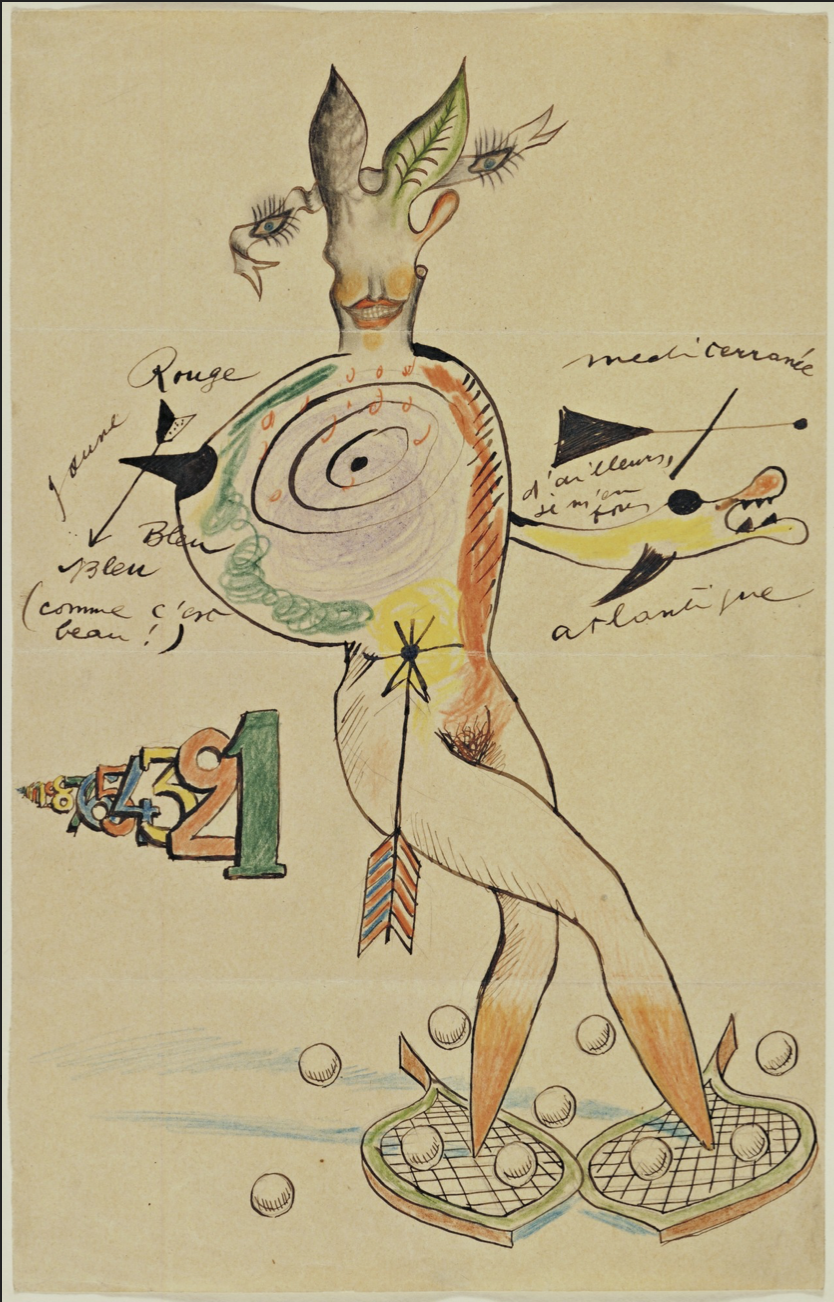 Rouge
Jaune
Bleu
Bleu
(comme c'est
beau !)
mediterranée
d'ailleurs,
je m'en
fous
atlantique
1
2
3
4
5
6
8
9